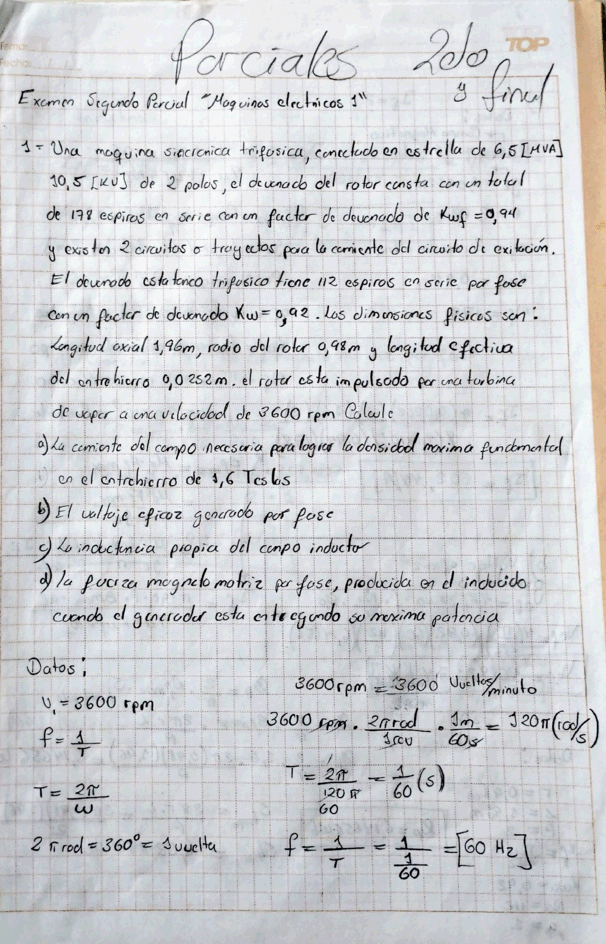 Parciales 2do
y final
TOP
Fecha:
Examen Segundo Parcial "Maquinas electricas 1"
1 = Una maquina sincronica trifasica, conectada en estrella de 6,5 [MVA]
10,5 [KV] de 2 polos, el devanado del rotor consta con un total
de 178 espiras en serie con un factor de devanado de Kwf = 0,94
y existen 2 circuitos o trayectos para la corriente del circuito de exitación.
El devanado estatorico trifasico tiene 112 espiras en serie por fase
con un factor de devanado Kw = 0,92. Las dimensiones fisicas son:
Longitud axial 1,96m, radio del rotor 0,98m y longitud efectiva
del entrehierro 0,0252m. el rotor esta impulsado por una turbina
de vapor a una velocidad de 3600 rpm Calcule
a) La corriente del campo necesaria para lograr la densidad maxima fundamental
en el entrehierro de 1,6 Teslas
b) El voltaje eficaz generado por fase
c) La inductancia propia del campo inductor
d) la fuerza magneto motriz por fase, producida en el inducido
cuando el generador esta entregando su maxima potencia
Datos:
3600 rpm = 3600 Vueltas/minuto
V₁ = 3600 rpm
3600 rpm . 2πrad/1rev . 1m/60s = 120π(rad/s)
f = 1/T
T = 2π/120π = 1/60 (s)
60
T = 2π/ω
2πrad = 360° = 1 vuelta
f = 1/T = 1/(1/60) = [60 Hz]